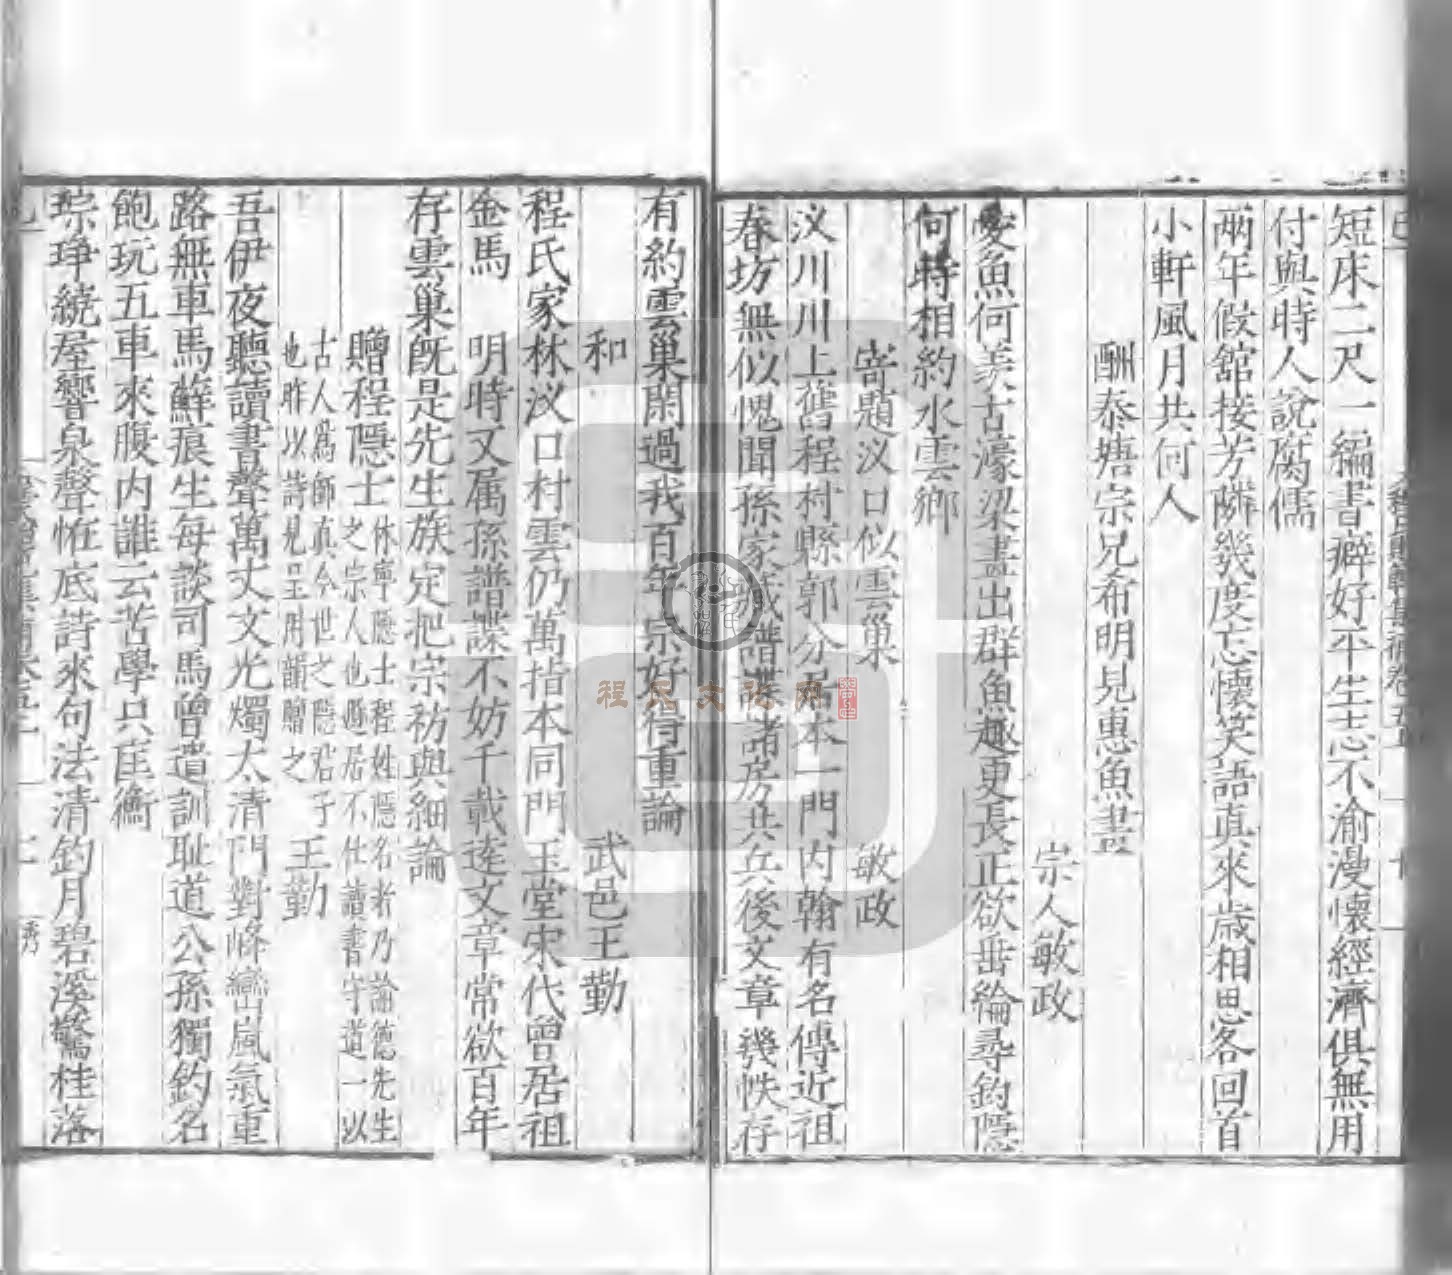 短床二尺一編書癖好平生志不渝漫懷經濟俱無用
付與時人說腐儒
兩年假舘接芳隣幾度忘懷笑語真來歲相思客回首
小軒風月共何人
酬泰塘宗兄希明見惠魚畫
宗人敏政
愛魚何羨古濠梁畫出群魚趣更長正欲垂綸尋釣隱
何時相約水雲鄉
寄題汊口似雲巢
敏政
汊川川上舊程村縣郭分居本一門内翰有名傳近祖
春坊無似愧聞孫家藏譜諜諸房共兵後文章幾帙存
有約雲巢閑過我百年宗好得重論
和
武邑王勤
程氏家林汊口村雲仍萬指本同門玉堂宋代曾居祖
金馬 明時又属孫譜諜不妨千載遠文章常欲百年
存雲巢旣是先生族定把宗祊與細論
贈程隱士
休寧隱士程姓隱名者乃論德先生
之宗人也過居不仕讀書守道一以
古人爲師真今世之隱君子
也昨以詩見呈用韻贈之
王勤
吾伊夜聽讀書聲萬丈文光燭太清門對峰巒嵐氣重
路無車馬蘚痕生每談司馬曾遺訓耻道公孫獨釣名
飽玩五車來腹内誰云苦學只匡衡
琮琤繞屋響泉聲恠底詩來句法清釣月碧溪驚桂落
程氏文化网